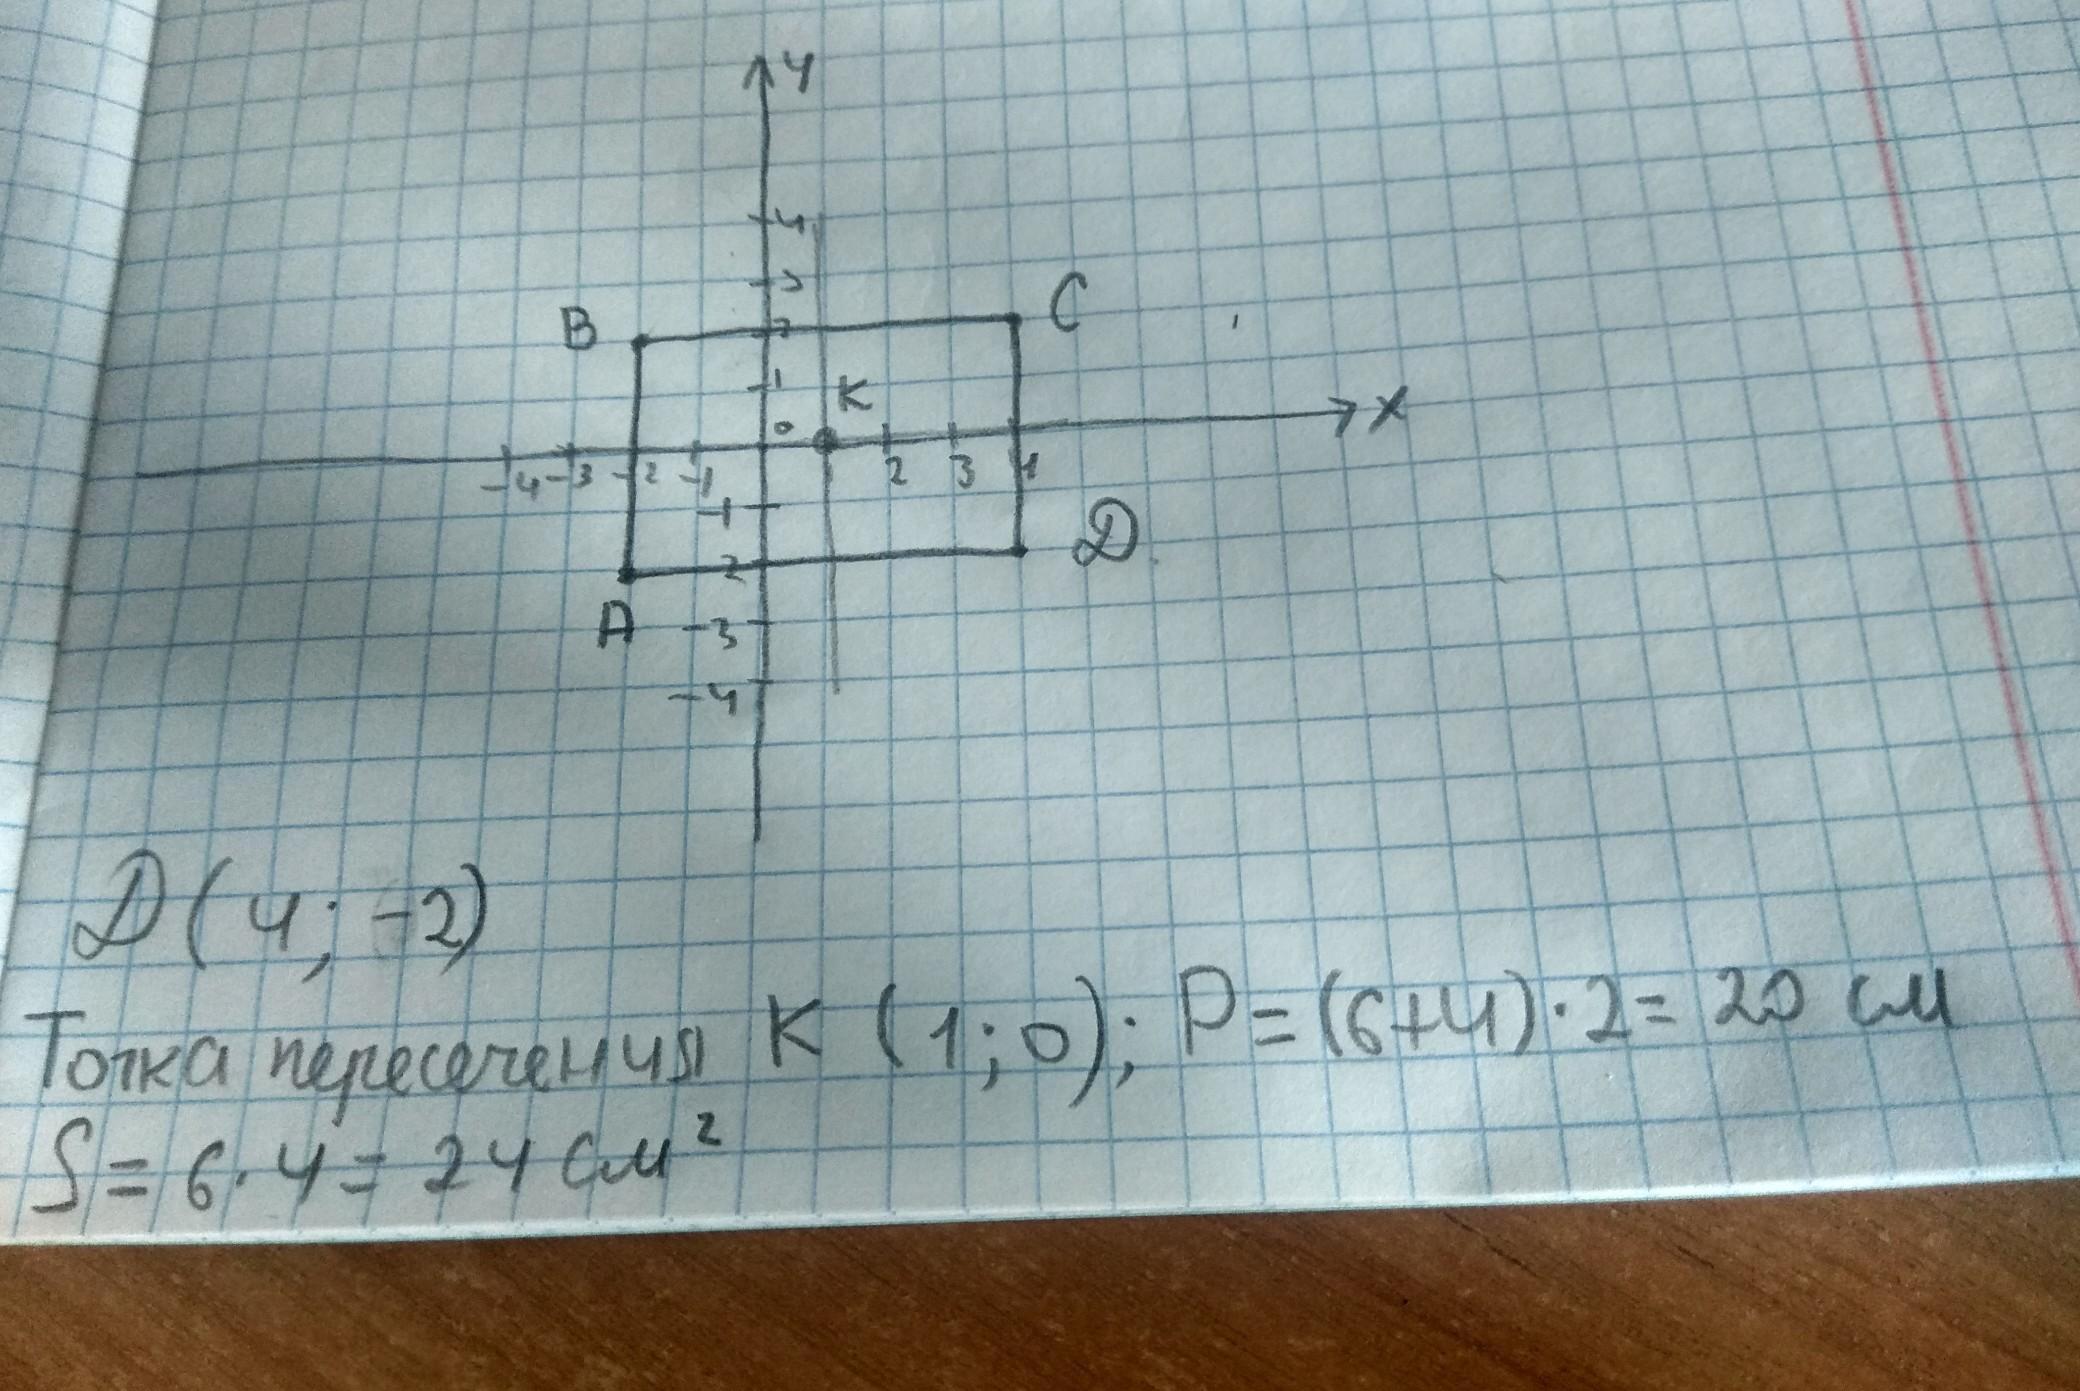 У
4
3
B
C
2
1
K
0
X
-4 -3 -2 -1 2 3 4
-1
D
2
A -3
-4
D(4; -2)
Точка пересечения K (1; 0); P = (6+4)·2= 20 см
S = 6·4 = 24 см²